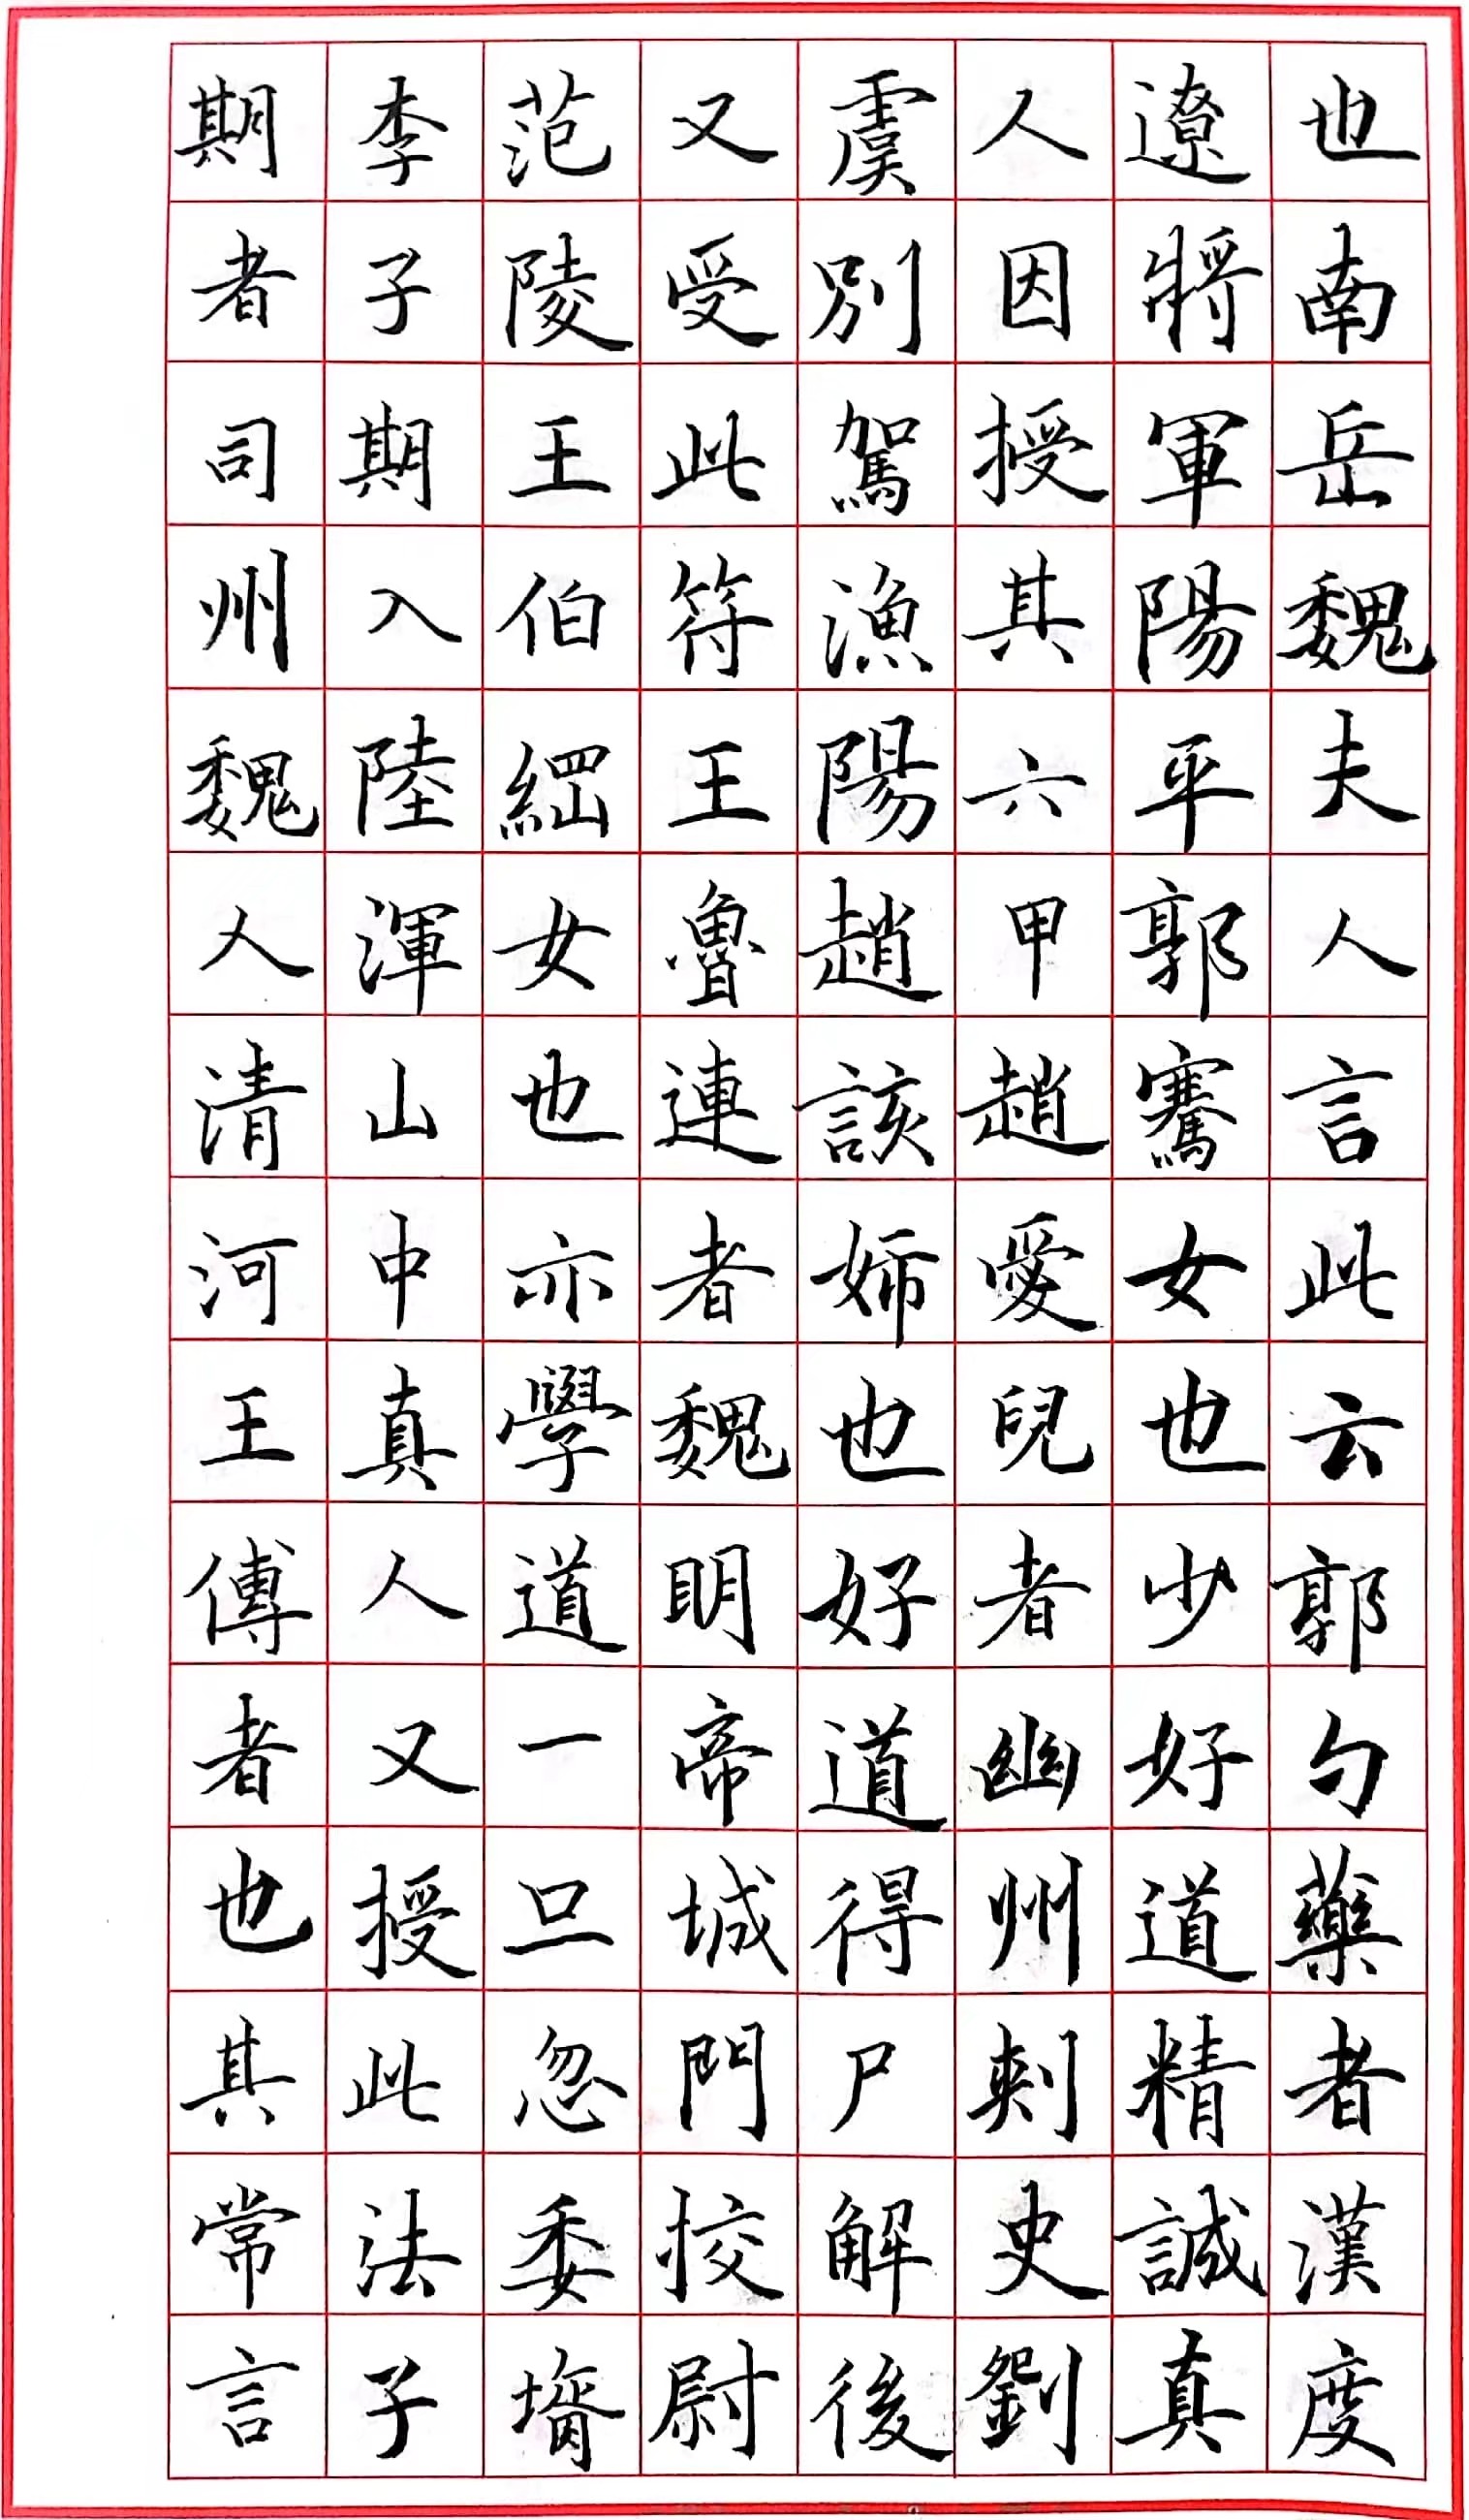 也南岳魏夫人言此云郭勺藥者漢度
遼將軍陽平郭騫女也少好道精誠真
人因授其六甲趙愛兒者幽州刺史劉
虞別駕漁陽趙該姊也好道得尸解後
又受此符王魯連者魏明帝城門挍尉
范陵王伯綱女也亦學道一旦忽委壻
李子期入陸渾山中真人又授此法子
期者司州魏人清河王傅者也其常言